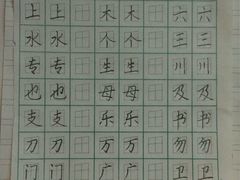 上上 木木 六六
水水 个个 三三
专专 生生 川川
也也 母母 及及
支支 乐乐 书书
刀刀 万万 勿勿
门门 广广 卫卫